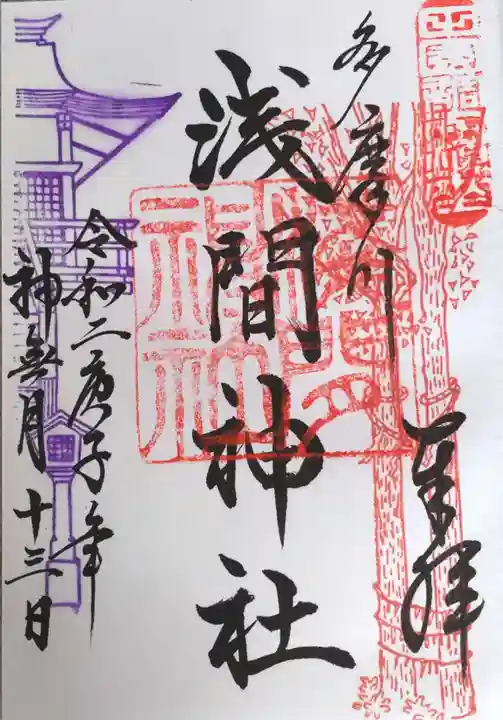 奉拝
多摩川
浅間神社
令和二庚子年
神無月十三日